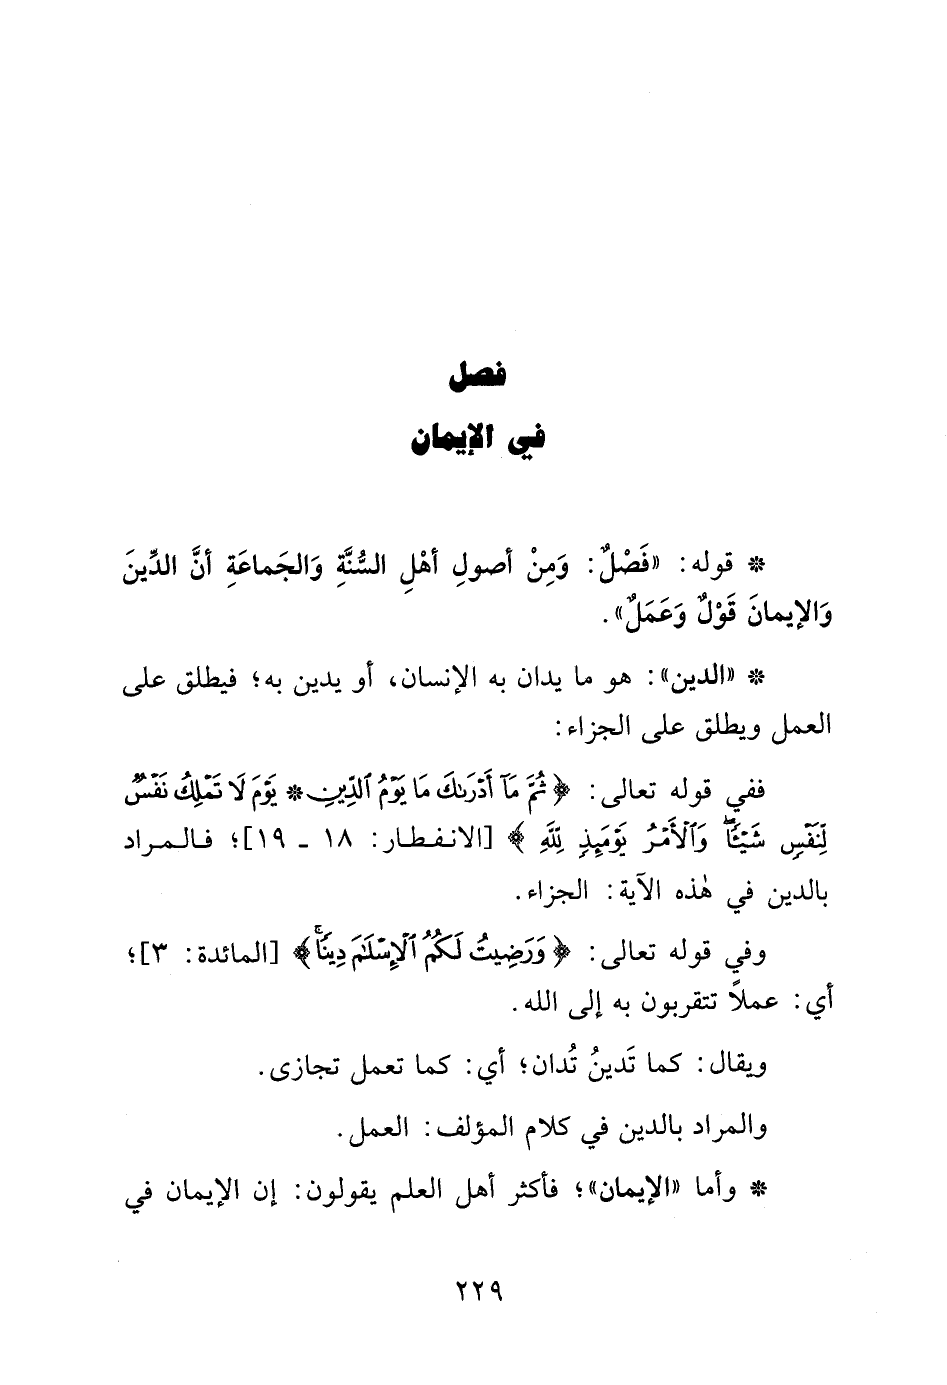 فصل
في الإيمان
* قوله: «فَصْلٌ: وَمِنْ أصولِ أهْلِ السُّنَّةِ وَالجَماعَةِ أنَّ الدِّينَ
وَالإيمانَ قَوْلٌ وَعَمَلٌ».
* «الدين»: هو ما يدان به الإنسان، أو يدين به؛ فيطلق على
العمل ويطلق على الجزاء:
ففي قوله تعالى: ﴿ثُمَّ مَآ أَدْرَىٰكَ مَا يَوْمُ ٱلدِّينِ * يَوْمَ لَا تَمْلِكُ نَفْسٌ
لِّنَفْسٍ شَيْـًٔا ۖ وَٱلْأَمْرُ يَوْمَئِذٍ لِّلَّهِ﴾ [الانفطار: ١٨ ـ ١٩]؛ فالمراد
بالدين في هٰذه الآية: الجزاء.
وفي قوله تعالى: ﴿وَرَضِيتُ لَكُمُ ٱلْإِسْلَـٰمَ دِينًا ۚ﴾ [المائدة: ٣]؛
أي: عملاً تتقربون به إلى الله.
ويقال: كما تَدينُ تُدان؛ أي: كما تعمل تجازى.
والمراد بالدين في كلام المؤلف: العمل.
* وأما «الإيمان»؛ فأكثر أهل العلم يقولون: إن الإيمان في
٢٢٩